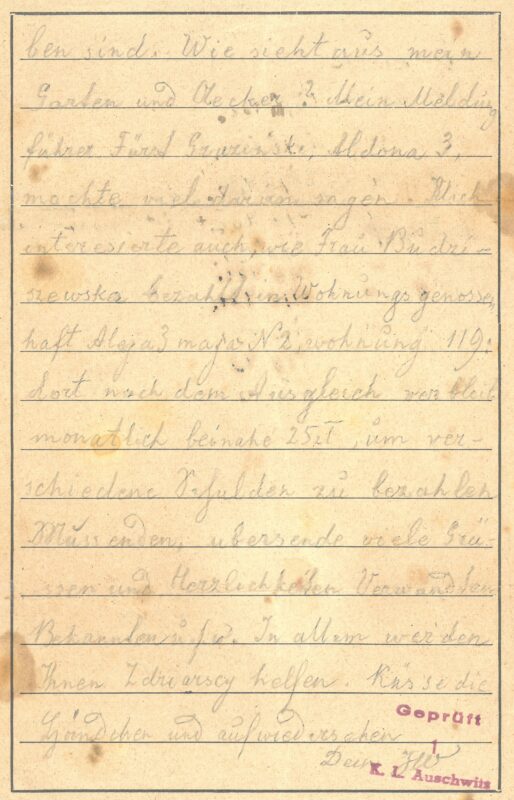 ben sind. Wie sieht aus mein
Garten und Aecker? Mein Meldung
führer Fürst Gruziński, Aldona 3,
mochte viel daran sagen. Mich
interesierte auch, wie Frau Budzi-
szewska bezahlt in Wohnungsgenossen
haft Aleja 3 maja N 2, wohnung 119:
dort nach dem Ausgleich verbleib
monatlich beinahe 25 zł, um ver-
schiedene Schulden zu bezahlen
Mussenden, ubersende viele Grü-
ssen und Herzlichkeiten Verwandten
Bekannten u.s.w. In allem werden
Ihnen Zdziarscy helfen. Küsse die
Händchen und aufwiedersehen
Dein
Geprüft
1
K. L. Auschwitz